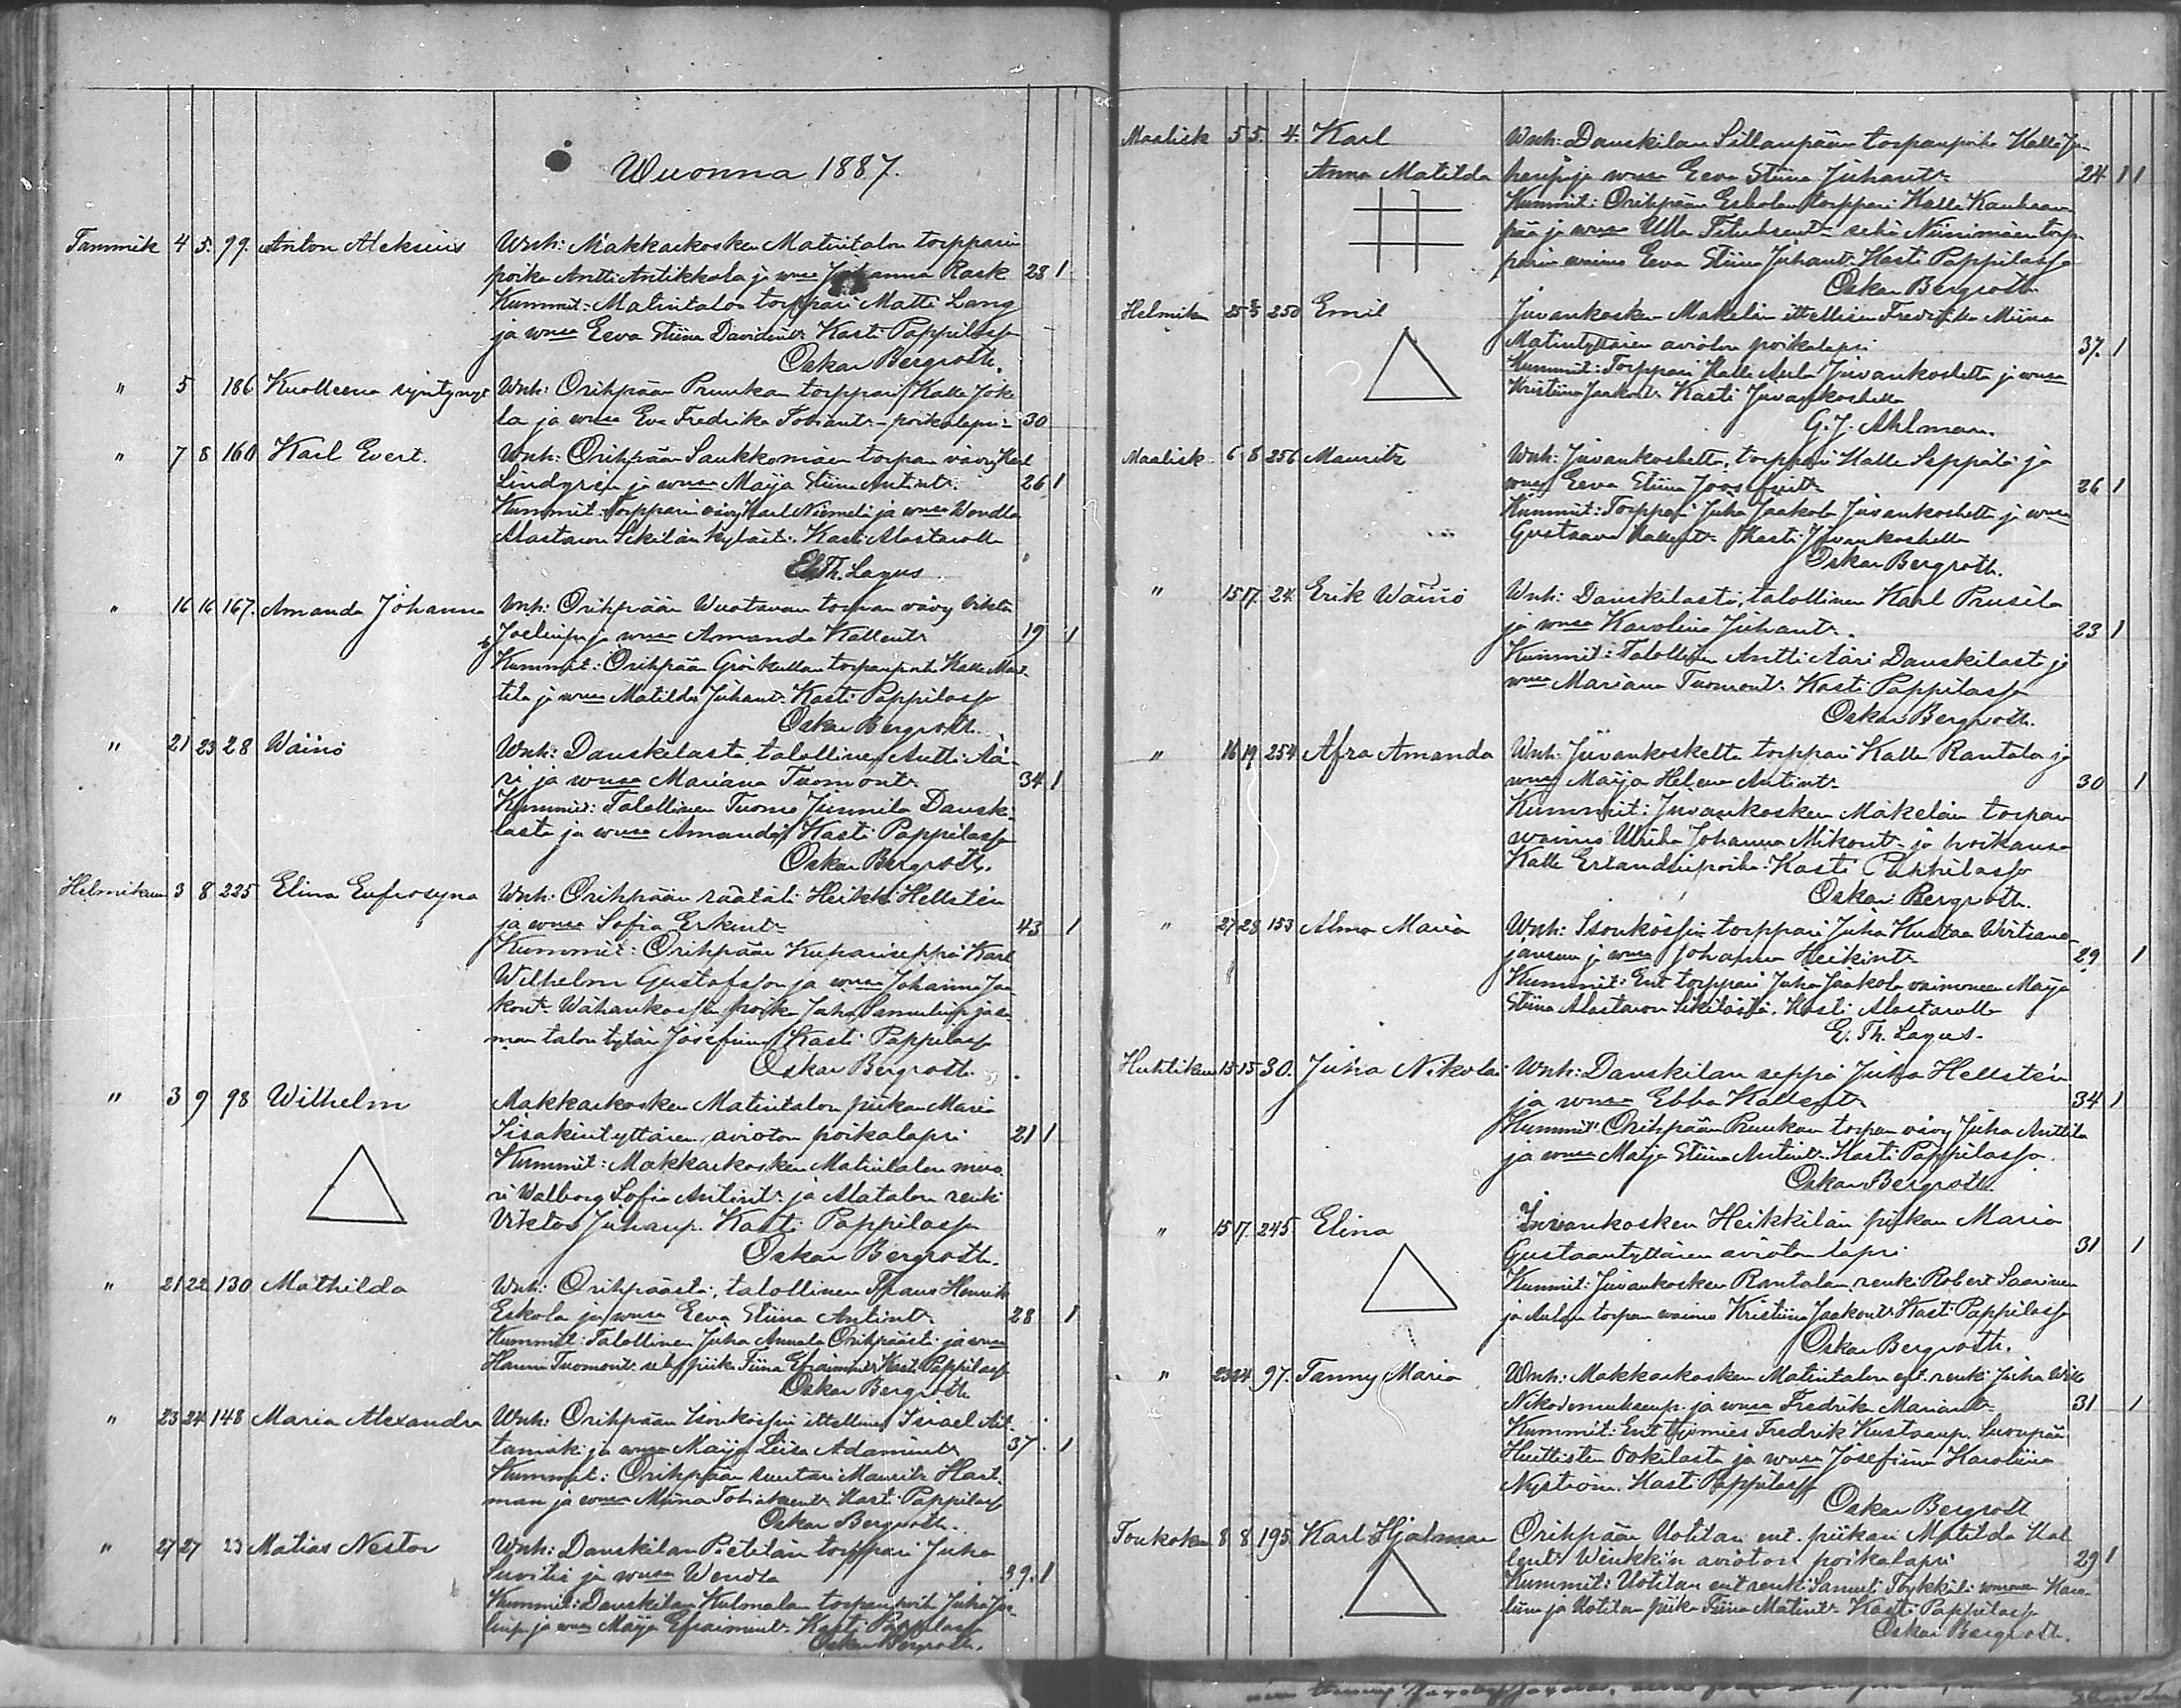 Wuonna 1887.
Tammik 4 5. 99. Anton Aleksius Wnh: Makkarkosken Matintalon torpparin
poika Antti Antikkala ja wmsa Johanna Rask 28 1
Kummit: Matintalon torppari Matti Lang
ja wmsa Eeva Stiina Davidint. Kasti Pappilassa
Oskar Bergroth.
" 5 186 Kuolleena syntynyt Wnh: Orihpään Pruukan torppari Kalle Joke
la ja wmsa Eva Fredrika Tobiant. - poikalapsi - 30
" 7 8 160 Karl Evert. Wnh: Orihpään Saukkomäen torpan vävy Karl
Lindgren ja wmsa Maija Stiina Antint. 26 1
Kummit: Torpparin vävy Karl Niemelä ja wmsa Wendla
Alastaron Sikilän kylästä. Kasti Alastarolla
E. Th. Lagus
" 16 16 167. Amanda Johanna Wnh: Orihpään Wuotavan torpan vävy Viktor
Joelinp. ja wmsa Amanda Kallent. 19 1
Kummit: Orihpään torpanpoik. Kalle Mat-
tila ja wmsa Matilda Juhant. Kasti Pappilassa
Oskar Bergroth.
" 21 23 28 Wäinö Wnh: Danskilasta, talollinen Antti Aä-
ri ja wmsa Mariana Tuomont. 34 1
Kummit: Talollinen Tuomo Junnila Danski-
lasta ja wmsa Amanda. Kasti Pappilassa
Oskar Bergroth.
Helmikuu 3 8 225 Elina Eufrosyna Wnh: Orihpään räätäli Heikki Hellstén
ja wmsa Sofia Erkint. 43 1
Kummit: Orihpään Kupariseppä Karl
Wilhelm Gustafsson ja wmsa Johanna Jaa-
kont. Wähankosken poika Juha Samulinp. ja sa-
man talon tytär Josefiina Kasti Pappilassa
Oskar Bergroth.
" 3 9 98 Wilhelm Makkarkosken Matintalon piikan Maria
Iisakintyttären, avioton poikalapsi 21 1
Kummit: Makkarkosken Matintalon muo-
ri Walborg Sofia Antint. ja Alatalon renki
Viktor Juhanp. Kasti Pappilassa
Oskar Bergroth.
" 21 22 130 Mathilda Wnh: Orihpäästä, talollinen Frans Henrik
Eskola ja wmsa Eeva Stiina Antint. 28 1
Kummit: Talollinen Juha Annala Orihpäästä ja wmsa
Hanna Tuomont. sekä piika Fiina Efraimint. Kasti Pappilassa
Oskar Bergroth
" 23 24 148 Maria Alexandra Wnh: Orihpään Isonkössin ittellinen Israel Ait-
tamäki ja wmsa Maija Liisa Adamint. 37. 1
Kummit: Orihpään suutari Maurits Hart-
man ja wmsa Miina Tobiaksent. Kasti Pappilassa
Oskar Bergroth.
" 27 27 23 Matias Nestor Wnh: Danskilan Pietilän torppari Juha
Suvitie ja wmsa Wendla 39. 1
Kummit: Danskilan Kulmalan torpanpoik. Juha Joe-
linp. ja wmsa Maija Efraimint. Kasti Pappilassa
Oskar Bergroth.
Maalisk 5 5. 4. Karl Wnh: Danskilan Sillanpään torpanpoika Kalle Ju-
Anna Matilda hanp. ja wmsa Eeva Stiina Juhant. 24 1 1
Kummit: Orihpään Eskolan torppari Kalle Kankaan-
pää ja wmsa Ulla Tituksent. sekä Niinimäen torp-
parin waimo Eeva Stiina Juhant. Kasti Pappilassa
Oskar Bergroth.
Helmiku 25 250 Emil Juvankosken Mäkelän ittellisen Fredrika Miina
Matintyttären avioton poikalapsi 37. 1
Kummit: Torppari Kalle Aula Juvankoskelta ja wmsa
Kristiina Jaakont. Kasti Juvankoskella
G. J. Ahlman.
Maalisk. 6 8 256 Maurits Wnh: Juvankoskelta, torppari Kalle Seppälä ja
wmsa Eeva Stiina Joosefint. 26 1
Kummit: Torppari Juha Jaakola Juvankoskelta ja wmsa
Gustaava Kallent. Kasti Juvankoskella
Oskar Bergroth.
" 15 17. 24. Erik Wäinö Wnh: Danskilasta, talollinen Karl Prusila
ja wmsa Karolina Juhant. 23 1
Kummit: Talollinen Antti Ääri Danskilasta ja
wmsa Mariana Tuomont. Kasti Pappilassa
Oskar Bergroth.
" 16 19. 254 Afra Amanda Wnh: Juvankoskelta torppari Kalle Rantala ja
wmsa Maija Helena Antint. 30 1
Kummit: Juvankosken Mäkelän torpan
waimo Ulrika Johanna Mikont. ja poikansa
Kalle Erlandinpoika. Kasti Pappilassa
Oskar Bergroth.
" 27 28 153 Alma Maria Wnh: Isonkössin torppari Juha Kustaa Wirtasen-
ja wmsa Johanna Heikint. 29 1
Kummit: Ent torppari Juha Jaakola vaimoneen Maija
Stiina Alastaron Sikilästä. Kasti Alastarolla
E. Th. Lagus.
Huhtikuu 15 15 30. Juha Nikolai Wnh: Danskilan seppä Juha Hellstén
ja wmsa Ebba Kallent. 34 1
Kummit: Orihpään Pruukan torpan vävy Juha Anttila
ja wmsa Maija Stiina Antint. Kasti Pappilassa.
Oskar Bergroth.
" 15 17. 245 Elina Juvankosken Heikkilän piikan Maria
Gustaantyttären avioton lapsi 31 1
Kummit: Juvankosken Rantalan renki Robert Saarinen
ja Aulan torpan waimo Kristiina Jaakont. Kasti Pappilassa
Oskar Bergroth.
" 23 24 97. Fanny Maria Wnh: Makkarkosken Matintalon ent. renki Juha Wille
Nikodemuksenp. ja wmsa Fredrika Mariant. 31 1
Kummit: Ent työmies Fredrik Kustaanp. Suonpää
Huittisten Ookilasta ja wmsa Josefiina Karoliina
Nyström. Kasti Pappilassa
Oskar Bergroth
Toukoku 8 8 195 Karl Hjalmar Orihpään Uotilan ent. piikan Matilda Kal-
lent. Winkki'n avioton poikalapsi 29 1
Kummit: Uotilan ent renki Samuli wmoneen Karo-
liina ja Uotilan piika Fiina Matint. Kasti Pappilassa
Oskar Bergroth.